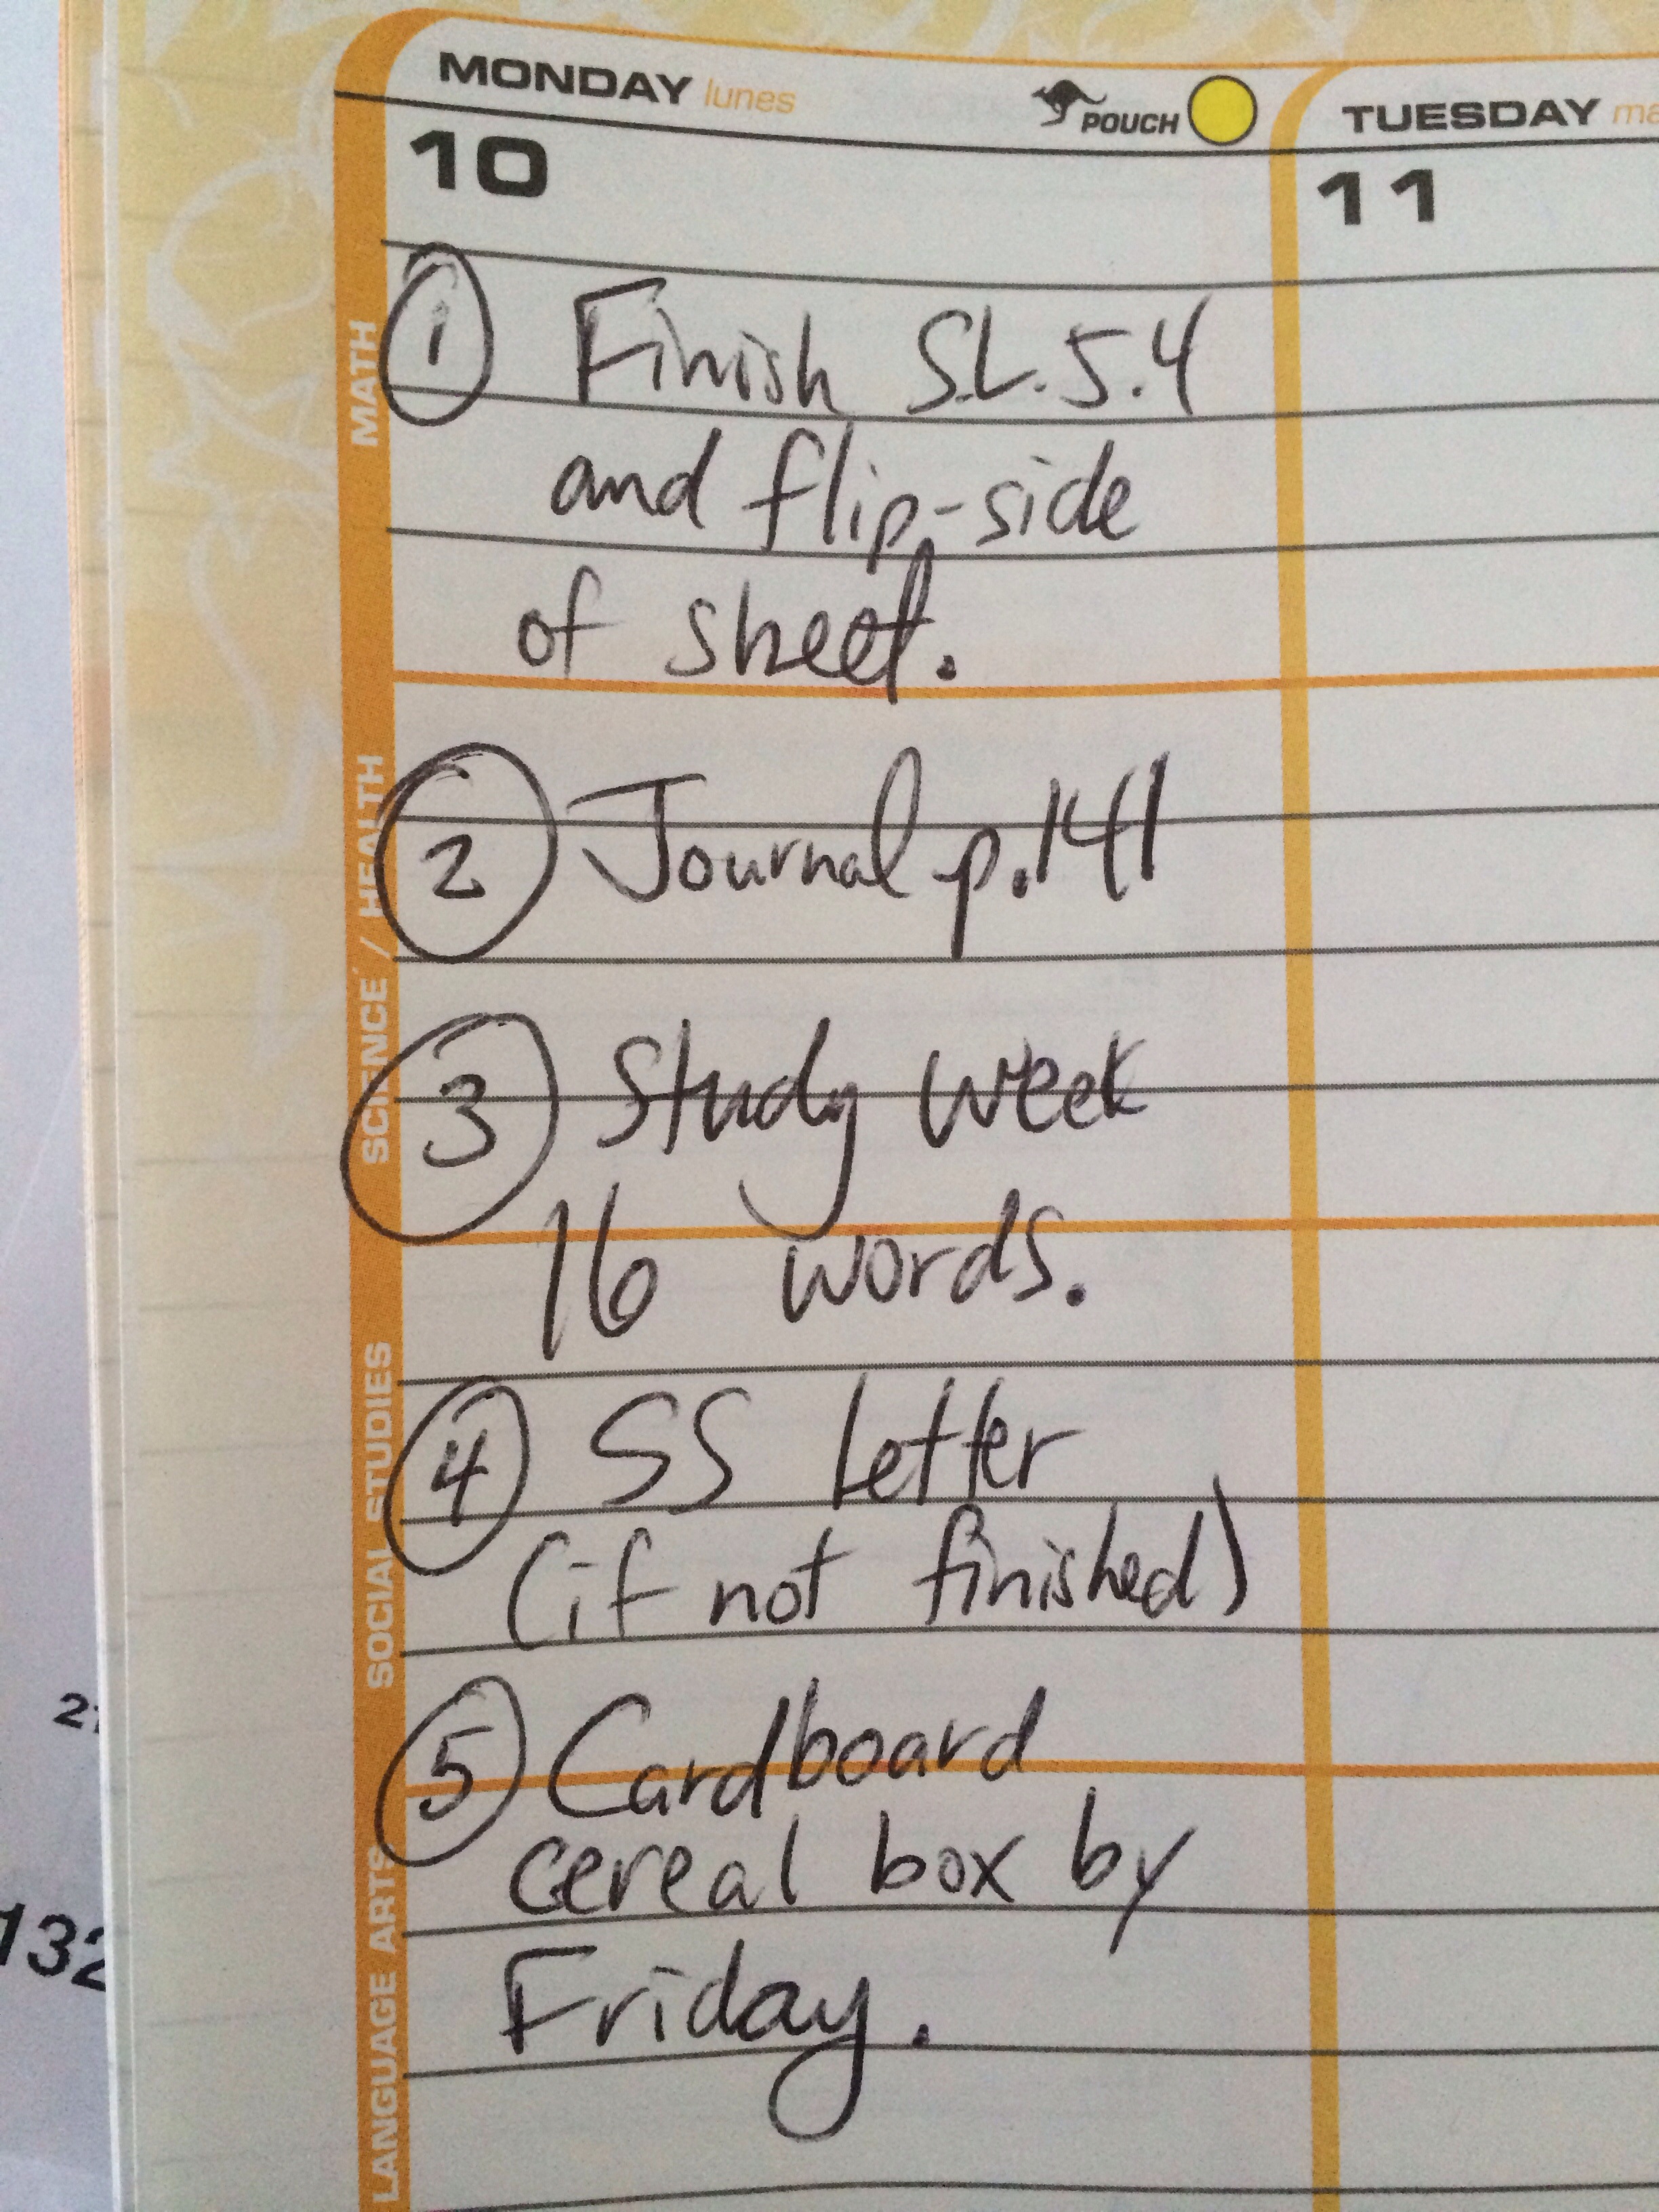 MONDAY lunes
POUCH
TUESDAY
10
11
① Finish SL.5.4
and flip-side
of sheet.
② Journal p.141
③ Study week
16 words.
④ SS letter
(if not finished)
⑤ Cardboard
cereal box by
Friday.
MATH
SCIENCE / HEALTH
SOCIAL STUDIES
LANGUAGE ARTS
132